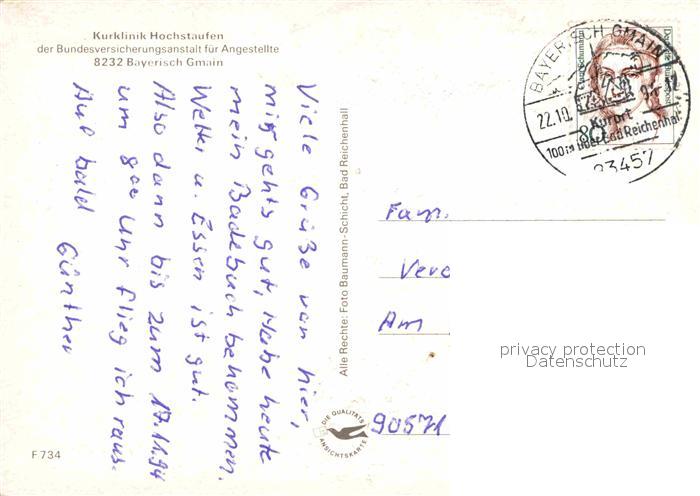 Kurklinik Hochstaufen
der Bundesversicherungsanstalt für Angestellte
8232 Bayerisch Gmain
Viele Grüße von hier,
mir gehts gut, Habe heute
mein Badebuch bekommen.
Wetter u. Essen ist gut.
Also dann bis zum 17.11.94
um 8oo Uhr flieg ich raus.
Auf bald
Günther
Alle Rechte: Foto Baumann-Schicht, Bad Reichenhall
DIE QUALITÄTS
ANSICHTSKARTE
F 734
BAYERISCH GMAIN
22.10.
Kurort
100m über Bad Reichenhall
83457
80
Clara Schumann
Deutsche Bundespost
Fam.
Vere
Am
90571
privacy protection
Datenschutz